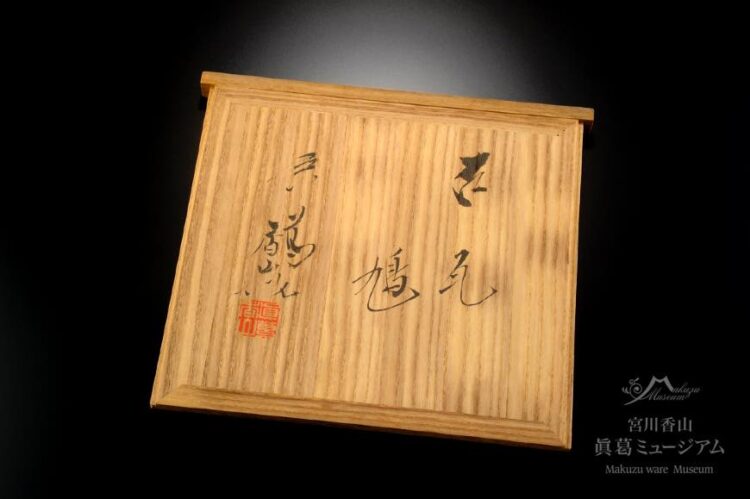 古瓦
鳩
真葛
香山
眞葛
香山
Makuzu
Museum
宮川香山
眞葛ミュージアム
Makuzu ware Museum